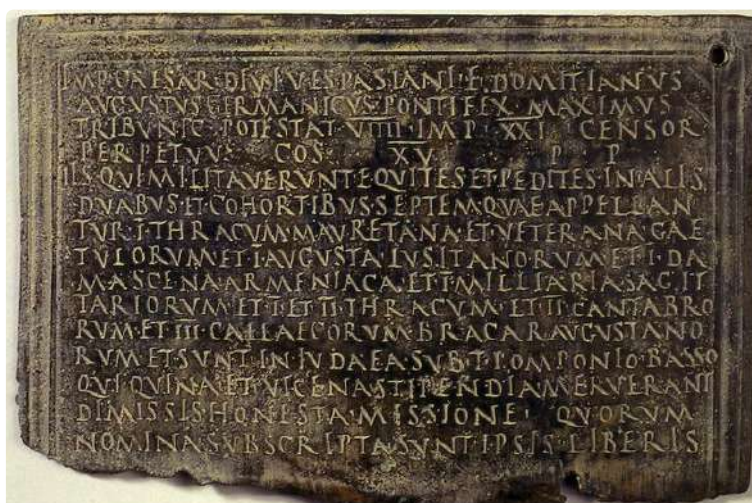 IMP·CAESAR·DIVI·VESPASIANI·F·DOMITIANVS
AVGVSTVS·GERMANICVS·PONTIFEX·MAXIMVS
TRIBVNIC·POTESTAT·V̅I̅I̅I̅I̅·IMP·X̅X̅I̅·CENSOR
PERPETVVS· COS· X̅V̅· P· P
IIS·QVI·MILITAVERVNT·EQVITES·ET·PEDITES·IN·ALIS
DVABVS·ET·COHORTIBVS·SEPTEM·QVAE·APPELLAN
TVR·I̅·THRACVM·MAVRETANA·ET·VETERANA·GAE
TVLORVM·ET·I̅·AVGVSTA·LVSITANORVM·ET·I̅·DA
MASCENA·ARMENIACA·ET·I̅·MILLIARIA·SAGIT
TARIORVM·ET·I̅·ET·I̅I̅·THRACVM·ET·I̅I̅·CANTABRO
RVM·ET·I̅I̅I̅·CALLAECORVM·BRACARAVGVSTANO
RVM·ET·SVNT·IN·IVDAEA·SVB·T·POMPONIO·BASSO
QVI·QVINA·ET·VICENA·STIPENDIA·MERVERANT
DIMISSIS·HONESTA·MISSIONE· QVORVM
NOMINA·SVBSCRIPTA·SVNT·IPSIS·LIBERIS